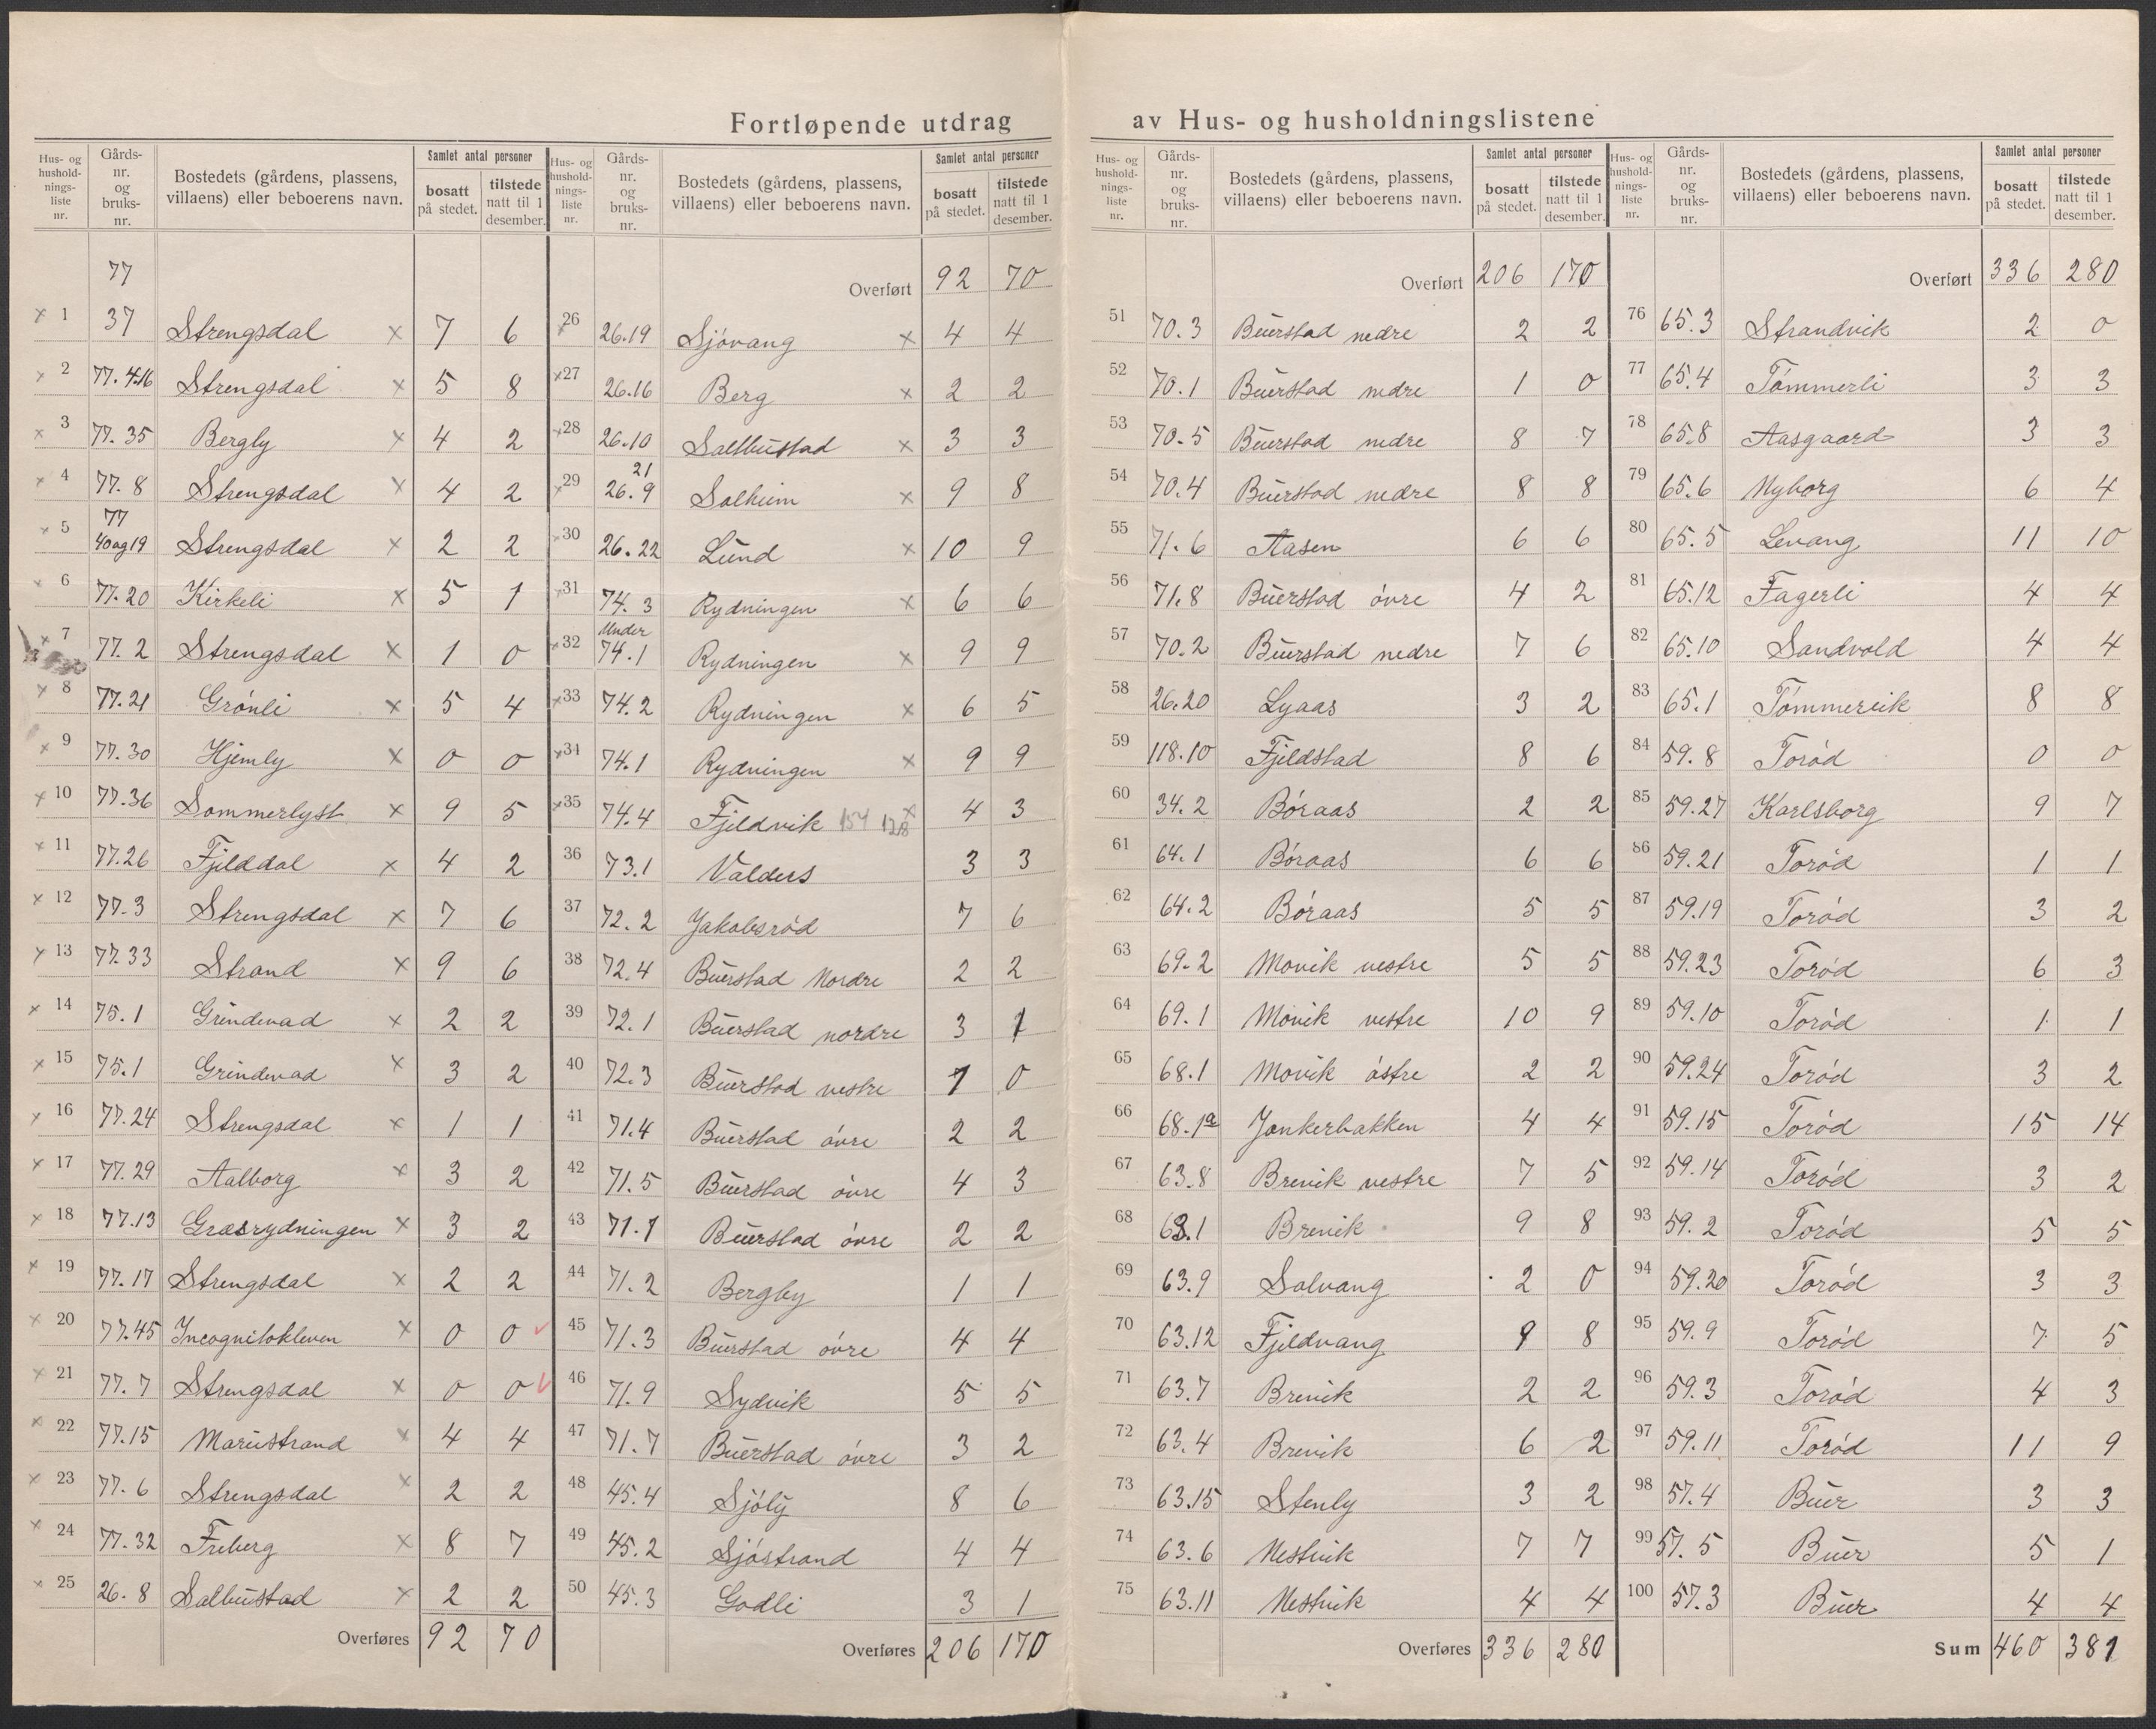 Fortløpende utdrag av Hus- og husholdningslistene
Hus- og husholdnings-liste nr. Gårds-nr. og bruks-nr. Bostedets (gårdens, plassens, villaens) eller beboerens navn. Samlet antal personer bosatt på stedet. tilstede natt til 1 desember.
77
x 1 37 Strengsdal x 7 6
x 2 77.4.16 Strengsdal x 5 8
x 3 77.35 Bergly x 4 2
x 4 77.8 Strengsdal x 4 2
x 5 77 40 og 19 Strengsdal x 2 2
x 6 77.20 Kirkeli x 5 1
x 7 77.2 Strengsdal x 1 0
x 8 77.21 Grönli x 5 4
x 9 77.30 Hjemly x 0 0
x 10 77.36 Sommerlyst x 9 5
x 11 77.26 Fjelddal x 4 2
x 12 77.3 Strengsdal x 7 6
x 13 77.33 Strand x 9 6
x 14 75.1 Grindevad x 2 2
x 15 75.1 Grindevad x 3 2
x 16 77.24 Strengsdal x 1 1
x 17 77.29 Aalborg x 3 2
x 18 77.13 Græsrydningen x 3 2
x 19 77.17 Strengsdal x 2 2
x 20 77.45 Incognitokleven x 0 0 ✓
x 21 77.7 Strengsdal x 0 0 ✓
x 22 77.15 Mariestrand x 4 4
x 23 77.6 Strengsdal x 2 2
x 24 77.32 Freberg x 8 7
x 25 26.8 Salbustad x 2 2
Overføres 92 70
Hus- og husholdnings-liste nr. Gårds-nr. og bruks-nr. Bostedets (gårdens, plassens, villaens) eller beboerens navn. Samlet antal personer bosatt på stedet. tilstede natt til 1 desember.
Overført 92 70
x 26 26.19 Sjövang x 4 4
x 27 26.16 Berg x 2 2
x 28 26.10 Saltbustad x 3 3
x 29 21 26.9 Solheim x 9 8
x 30 26.22 Lund x 10 9
x 31 74.3 Rydningen x 6 6
x 32 Under 74.1 Rydningen x 9 9
x 33 74.2 Rydningen x 6 5
x 34 74.1 Rydningen x 9 9
x 35 74.4 Fjeldvik 154 128 x 4 3
36 73.1 Valders 3 3
37 72.2 Jakobsröd 7 6
38 72.4 Buerstad Nordre 2 2
39 72.1 Buerstad nordre 3 1
40 72.3 Buerstad vestre 1 0
41 71.4 Buerstad övre 2 2
42 71.5 Buerstad övre 4 3
43 71.1 Buerstad övre 2 2
44 71.2 Bergby 1 1
45 71.3 Buerstad övre 4 4
46 71.9 Sydvik 5 5
47 71.7 Buerstad övre 3 2
48 45.4 Sjöly 8 6
49 45.2 Sjöstrand 4 4
50 45.3 Godli 3 1
Overføres 206 170
Hus- og husholdnings-liste nr. Gårds-nr. og bruks-nr. Bostedets (gårdens, plassens, villaens) eller beboerens navn. Samlet antal personer bosatt på stedet. tilstede natt til 1 desember.
Overført 206 170
51 70.3 Buerstad nedre 2 2
52 70.1 Buerstad nedre 1 0
53 70.5 Buerstad nedre 8 7
54 70.4 Buerstad nedre 8 8
55 71.6 Aasen 6 6
56 71.8 Buerstad övre 4 2
57 70.2 Buerstad nedre 7 6
58 26.20 Lyaas 3 2
59 118.10 Fjeldstad 8 6
60 34.2 Böraas 2 2
61 64.1 Böraas 6 6
62 64.2 Böraas 5 5
63 69.2 Movik vestre 5 5
64 69.1 Movik vestre 10 9
65 68.1 Movik östre 2 2
66 68.1a Jonkerbakken 4 4
67 63.8 Brevik vestre 7 5
68 63.1 Brevik 9 8
69 63.9 Solvang 2 0
70 63.12 Fjeldvang 9 8
71 63.7 Brevik 2 2
72 63.4 Brevik 6 2
73 63.15 Stenly 3 2
74 63.6 Nestvik 7 7
75 63.11 Nestvik 4 4
Overføres 336 280
Hus- og husholdnings-liste nr. Gårds-nr. og bruks-nr. Bostedets (gårdens, plassens, villaens) eller beboerens navn. Samlet antal personer bosatt på stedet. tilstede natt til 1 desember.
Overført 336 280
76 65.3 Strandvik 2 0
77 65.4 Tömmerli 3 3
78 65.8 Aasgaard 3 3
79 65.6 Nyborg 6 4
80 65.5 Levang 11 10
81 65.12 Fagerli 4 4
82 65.10 Sandvold 4 4
83 65.1 Tömmervik 8 8
84 59.8 Toröd 0 0
85 59.27 Karlsborg 9 7
86 59.21 Toröd 1 1
87 59.19 Toröd 3 2
88 59.23 Toröd 6 3
89 59.10 Toröd 1 1
90 59.24 Toröd 3 2
91 59.15 Toröd 15 14
92 59.14 Toröd 3 2
93 59.2 Toröd 5 5
94 59.20 Toröd 3 3
95 59.9 Toröd 7 5
96 59.3 Toröd 4 3
97 59.11 Toröd 11 9
98 57.4 Buer 3 3
99 57.5 Buer 5 1
100 57.3 Buer 4 4
Sum 460 381